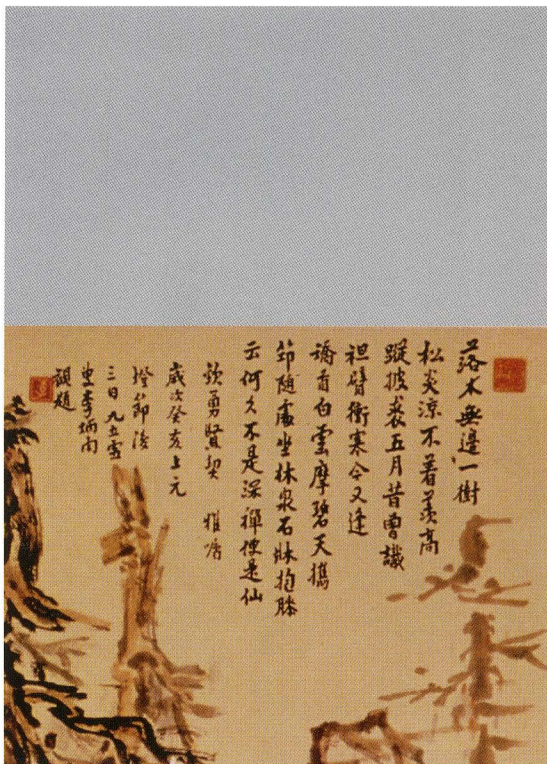 落木無邊一樹
松炎涼不着羨高
蹤披裘五月昔曾譏
袒臂衝寒今又逢
矯首白雲摩碧天攜
筇隨處坐林泉石牀抱膝
云何久不是深禪便是仙
欽勇賢契 雅屬
歲次癸亥上元
燈節後
三日九五雪
叟李炳南
題